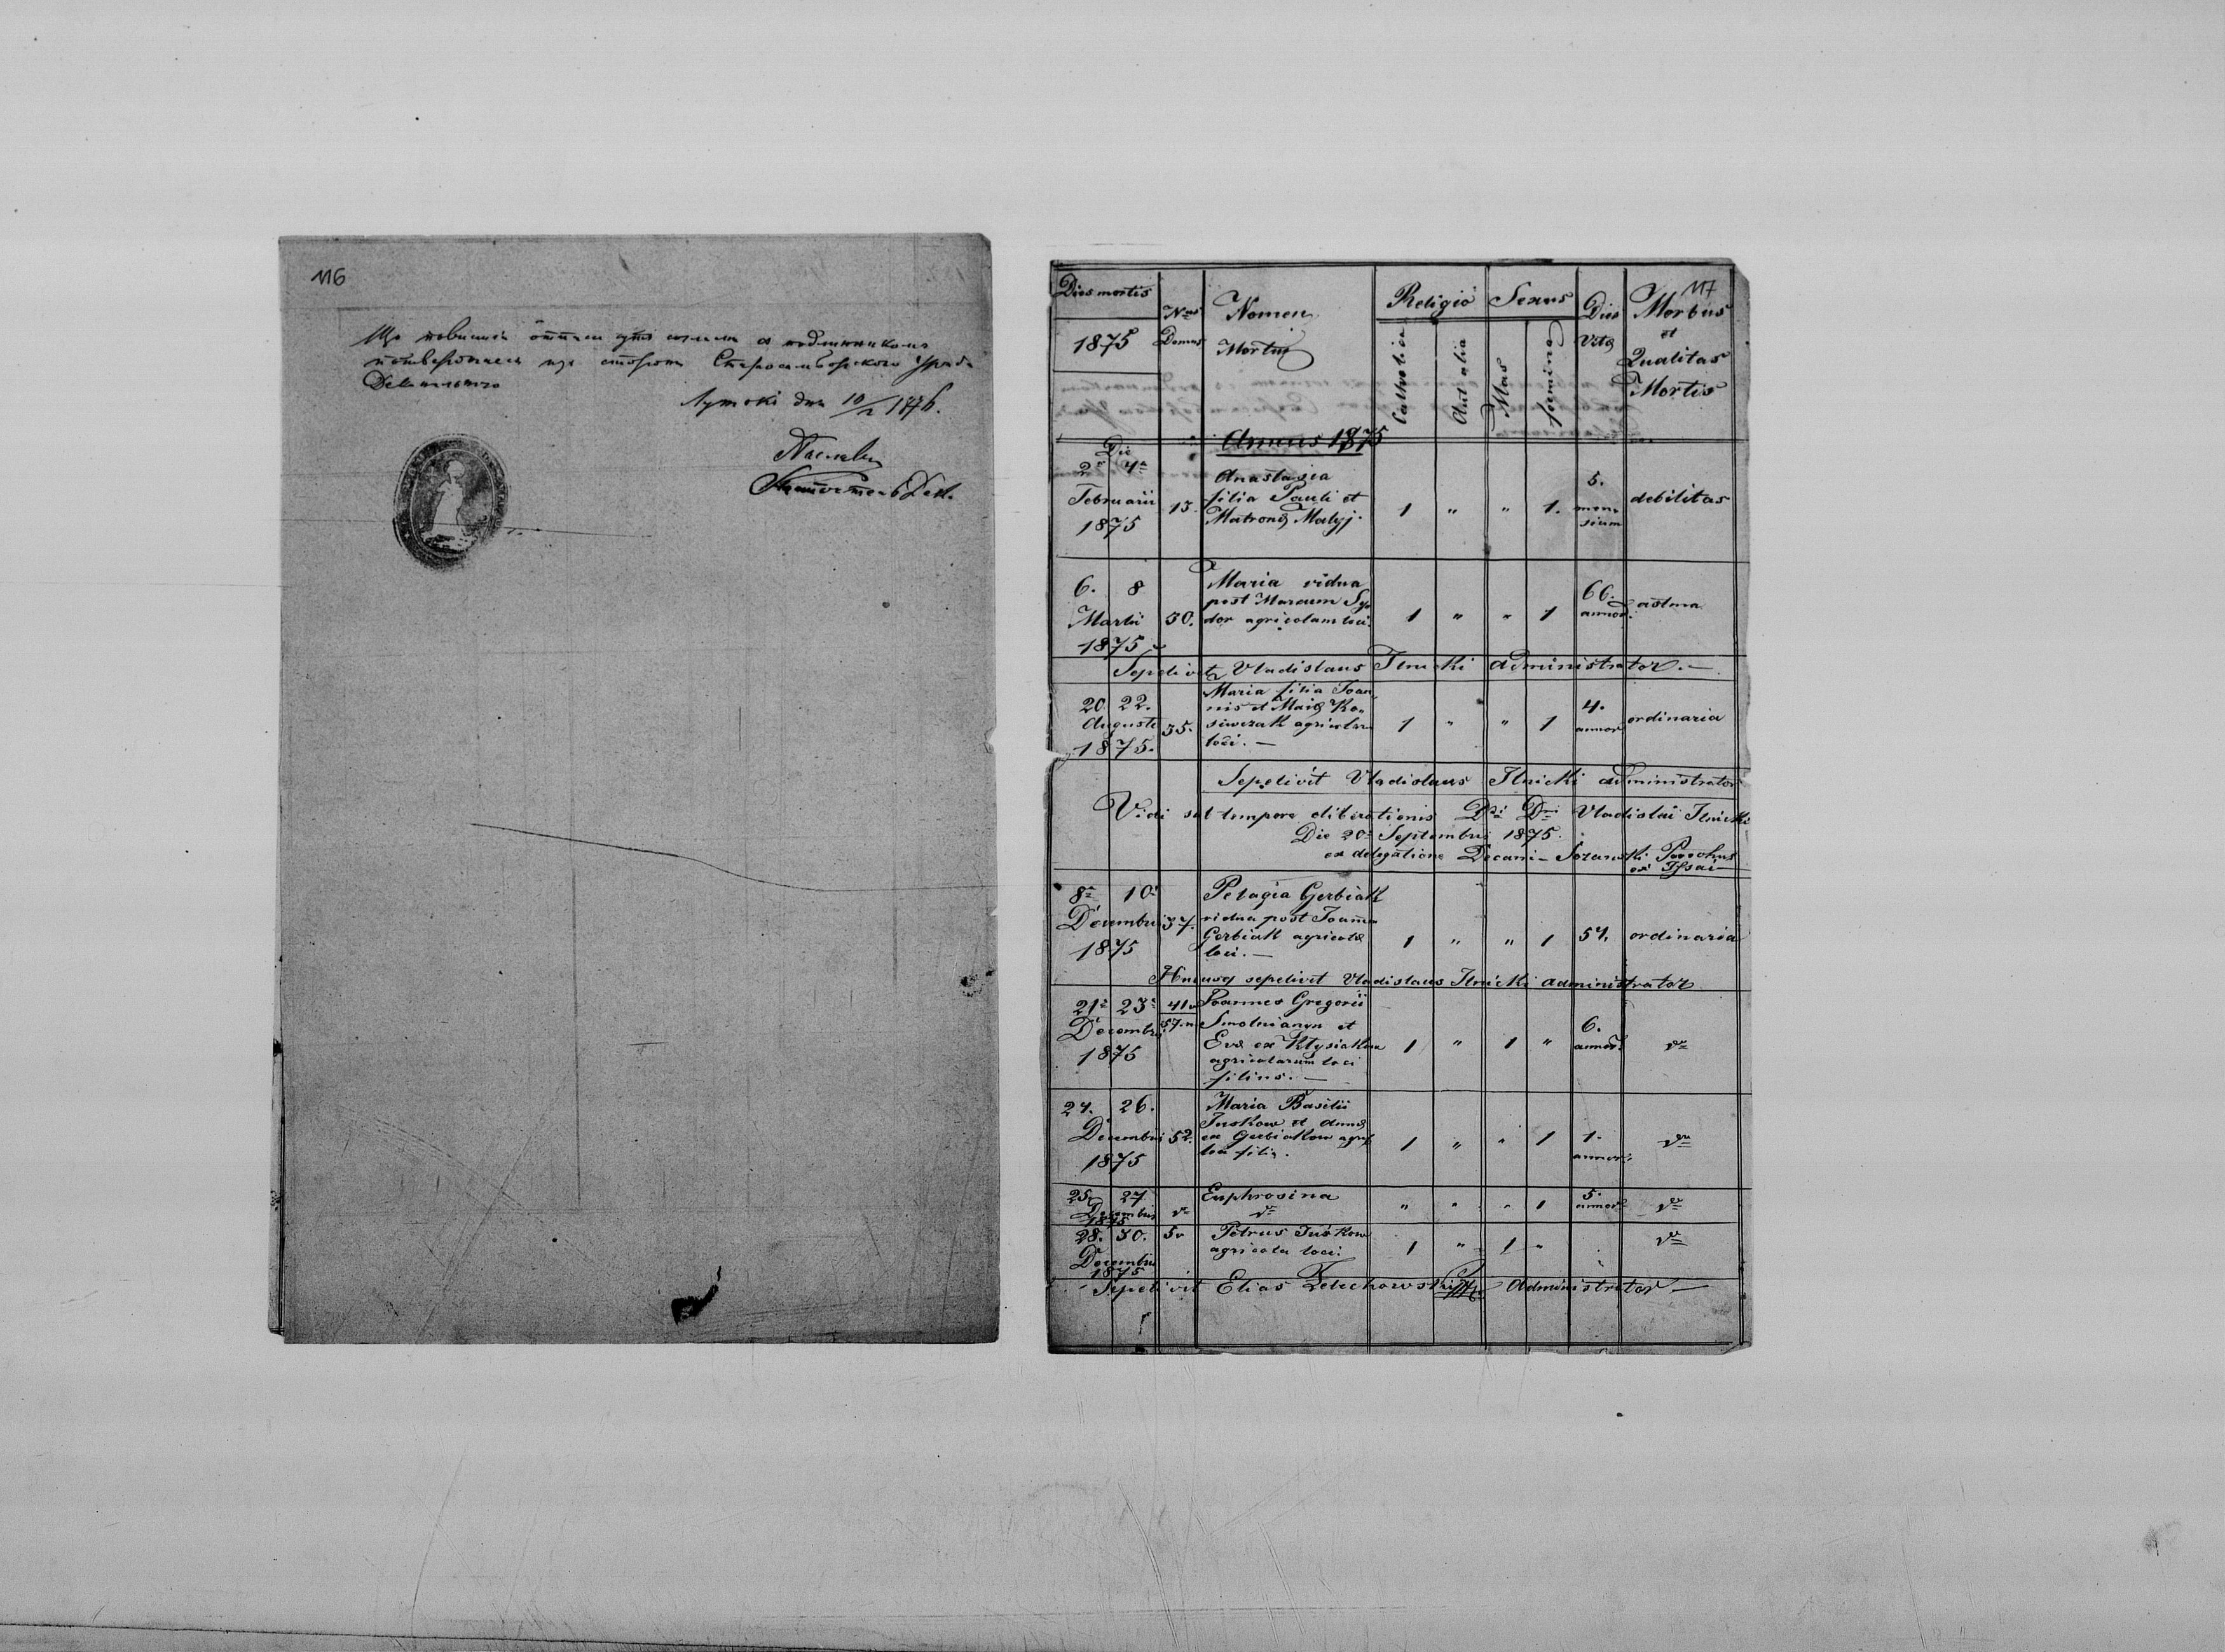 116
Що
Старосамборского Уряда
Деканального
дня 10/2 1876.
117
Dies mortis
1875
Nrus Domus
Nomen
Mortui
Religio
Catholica
Aut alia
Sexus
Mas
femina
Dies
Vitæ
Morbus
et
Qualitas
Mortis
Annus 1875
Die
2a 4a
Februarii
1875
15.
Anastasia
filia Pauli et
Matronæ Malyj.
1 " " 1.
5.
men-
sium
debilitas
6. 8
Martii
1875
50.
Maria vidua
post Marcum Sy-
dor agricolam loci.
1 " " 1
66.
annor.
astma
Sepelivit Vladislaus Ilnicki administrator. —
20 22.
Augusti
1875.
35.
Maria filia Joan-
nis et Mariæ Ko-
siwczak agricolarum
loci. —
1 " " 1
4.
annor
ordinaria
Sepelivit Vladislaus Ilnicki administrator
Vidi sub tempore Dni Dni Vladislai Ilnicki
Die 20a Septembris 1875.
ex delegatione Decani – Sozanski Parochus
8a 10a
Decembris
1875
37.
Pelagia Gerbiak
vidua post Joannem
Gerbiak agricola
loci. —
1 " " 1
57.
ordinaria
Hucusq sepelivit Vladislaus Ilnicki administrator
21a 23a
Decembris
1875
41.
Joannes Gregorii
Smolnianyn et
Evæ ex Klysiakow
agricolarum loci
filius. —
1 " 1 "
6.
annor.
do
24. 26.
Decembris
1875
52.
Maria Basilii
Juskow et Annæ
ex Gerbiakow agric
loci filia.
1 " " 1
1.
annor.
do
25 27
Decembris
1875
do
Euphrosina
do
" " " 1
5.
annor
do
28. 30.
Decembris
1875
Petrus Juśkow
agricola loci.
1 " 1 "
do
Sepelivit Elias Administrator —